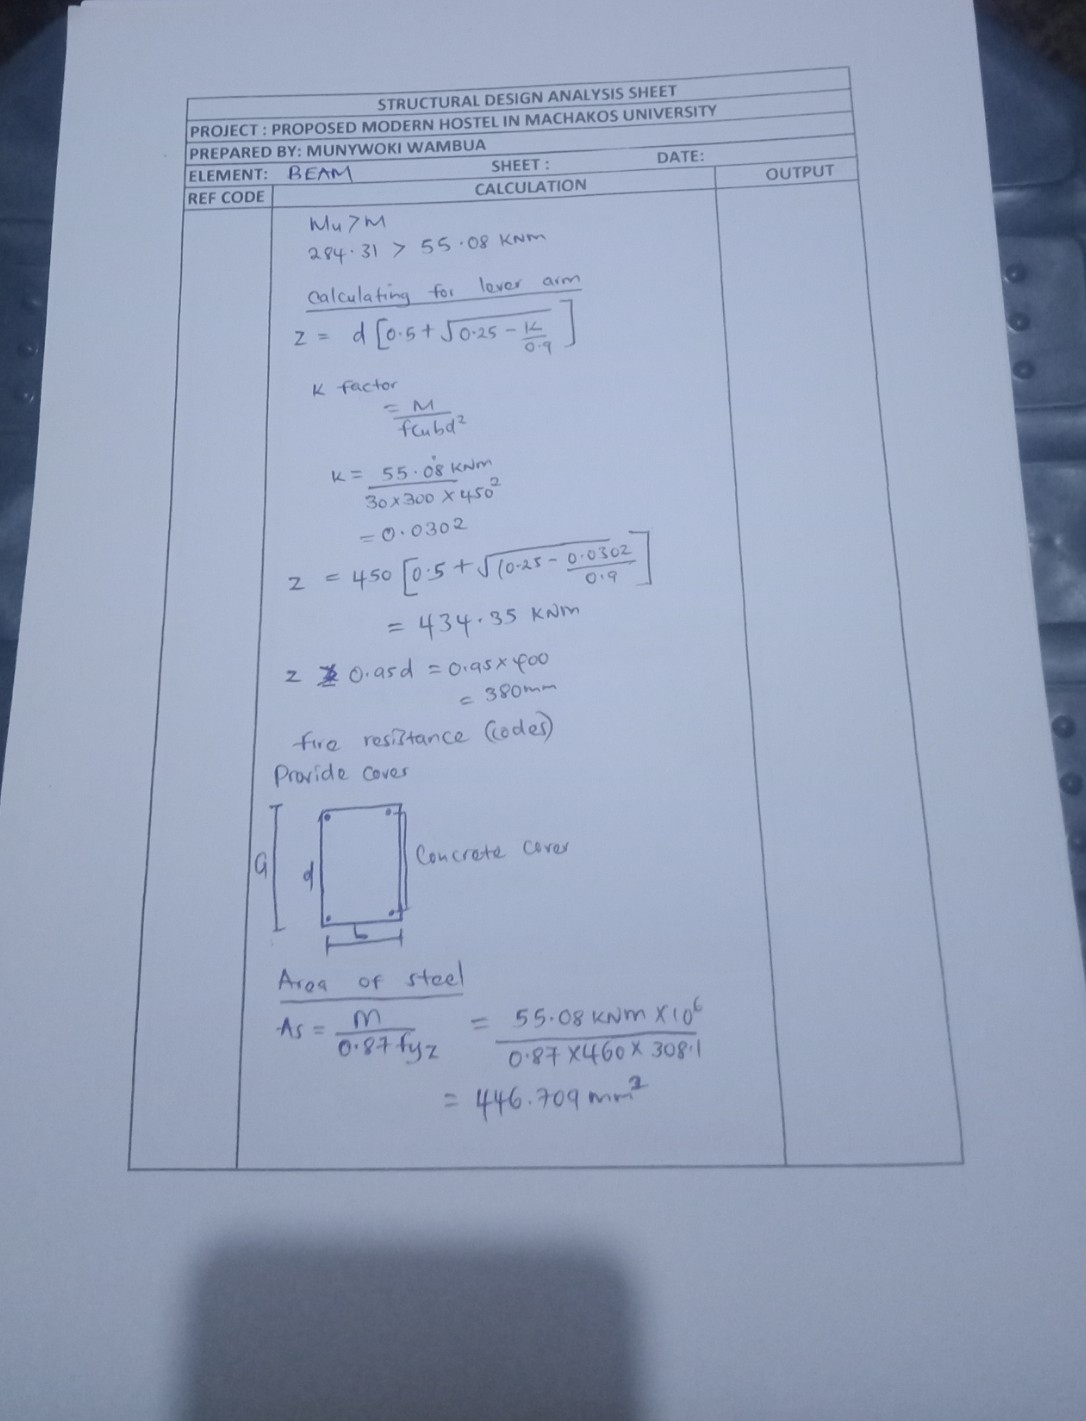 STRUCTURAL DESIGN ANALYSIS SHEET
PROJECT : PROPOSED MODERN HOSTEL IN MACHAKOS UNIVERSITY
PREPARED BY: MUNYWOKI WAMBUA
ELEMENT: BEAM SHEET : DATE:
REF CODE CALCULATION OUTPUT
Mu > M
284.31 > 55.08 KNm
Calculating for lever arm
Z = d [0.5 + √0.25 - K/0.9]
K factor
= M/fcubd²
K = 55.08 KNm/30 x 300 x 450²
= 0.0302
Z = 450 [0.5 + √(0.25 - 0.0302/0.9]
= 434.35 KNm
Z 0.95d = 0.95 x 400
= 380mm
fire resistance (codes)
Provide cover
d
Concrete cover
b
Area of steel
As = M/0.87 fyz = 55.08 KNm x 10⁶/0.87 x 460 x 308.1
= 446.709 mm²